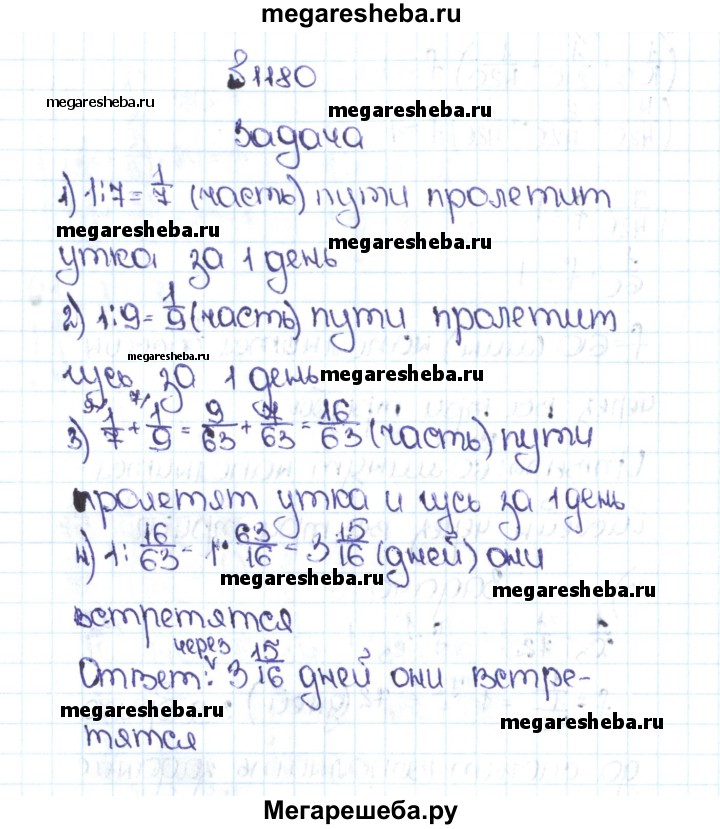 megaresheba.ru
№1180
megaresheba.ru
megaresheba.ru
Задача
1) 1:7=1/7 (часть) пути пролетит
megaresheba.ru
megaresheba.ru
утка за 1 день
2) 1:9=1/9 (часть) пути пролетит
megaresheba.ru
гусь за 1 день
megaresheba.ru
3) 9/ 1/7 + 7/ 1/9 = 9/63 + 7/63 = 16/63 (часть) пути
пролетят утка и гусь за 1 день
4) 1: 16/63 = 1 · 63/16 = 3 15/16 (дней) они
megaresheba.ru
встретятся
через
Ответ: 3 15/16 дней они встре-
megaresheba.ru
megaresheba.ru
тятся
Мегарешеба.ру